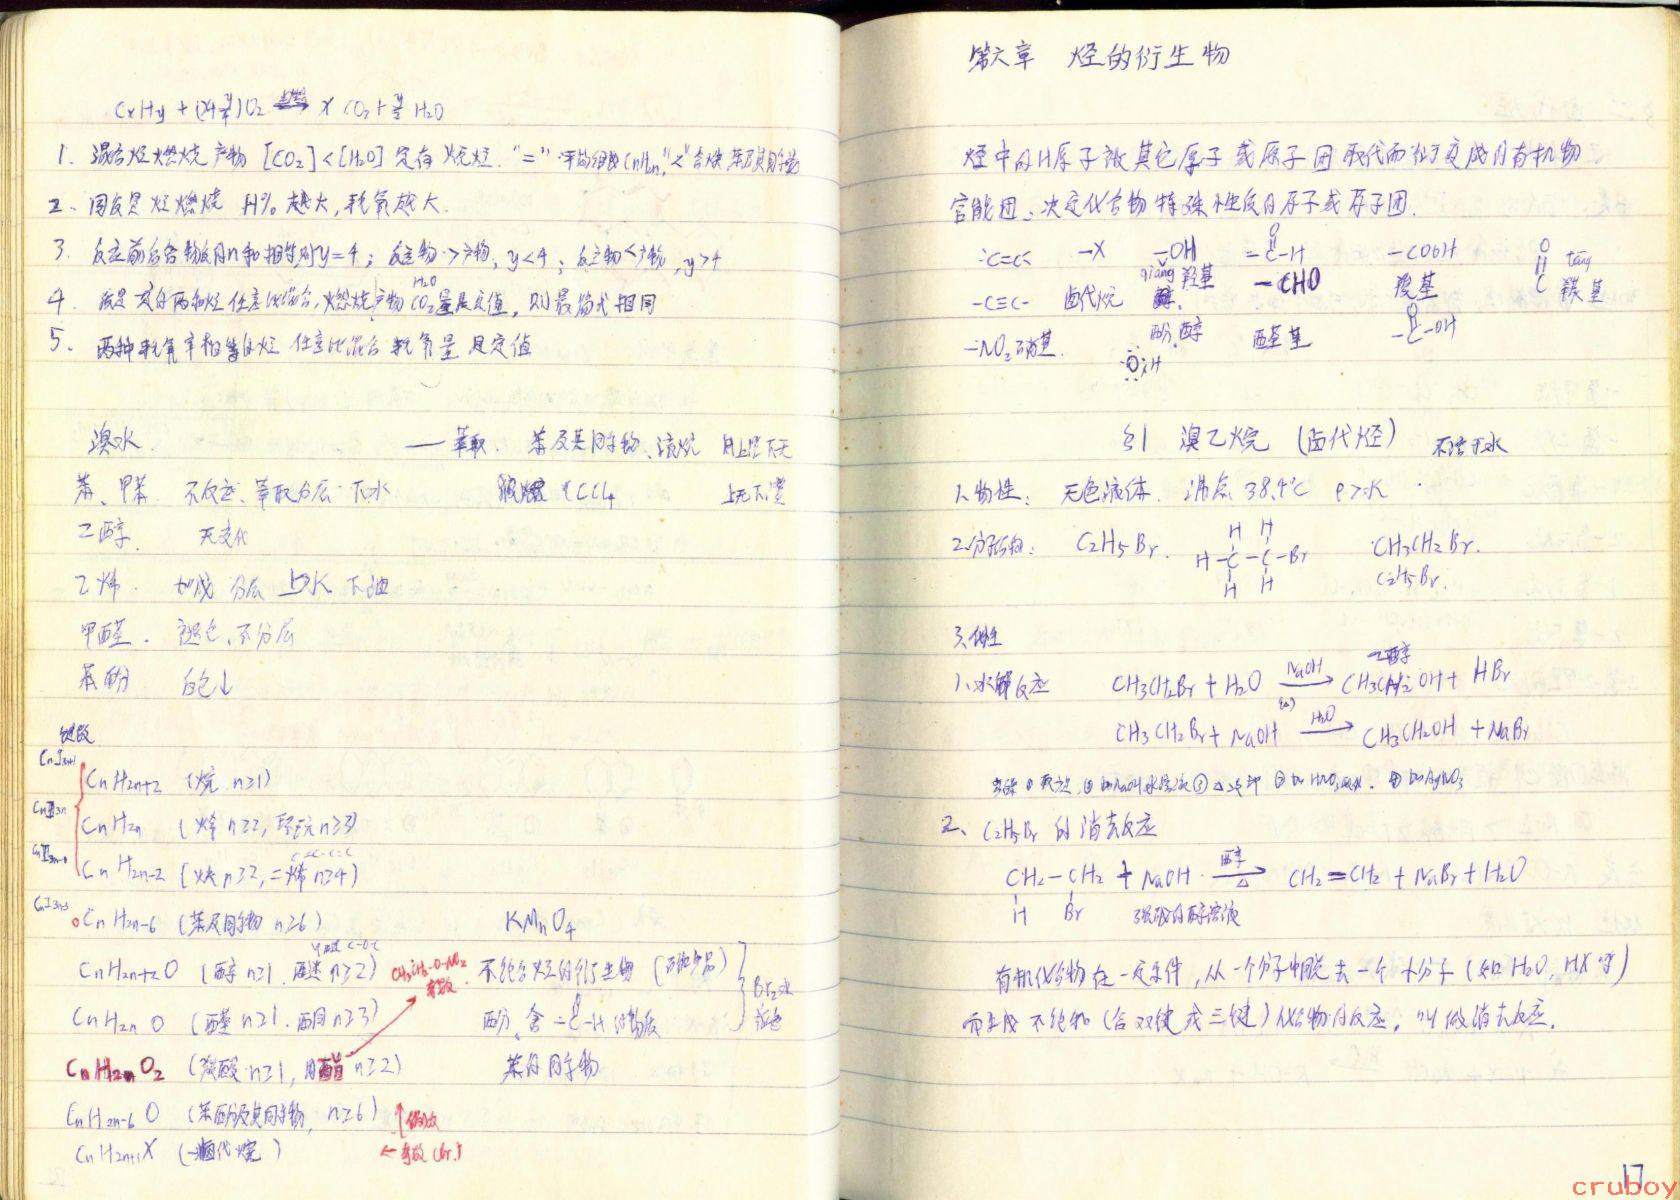 CxHy + (x+y/4)O2 点燃→ x CO2 + y/2 H2O
1. 混合烃燃烧产物 [CO2]<[H2O] 定有烷烃. "=" 平均组成CnH2n, "<" 含炔,苯及其同系物
2. 同质量烃燃烧 H% 越大,耗氧越大.
3. 反应前后各物质的n和相等则y=4; 反应物>产物, y<4; 反应物<产物, y>4
4. 质量一定的两种烃任意比混合,燃烧产物CO2量是定值, 则最简式相同
H2O
5. 两种耗氧率相等的烃 任意比混合 耗氧量是定值
溴水 — 萃取 苯及其同系物、液烷 上层 下无
苯、甲苯. 不反应、萃取分层 下水 CCl4 上无下层
乙醇. 无变化
乙烯. 加成 分层 上水 下油
甲醛. 褪色、不分层
苯酚 白色↓
键数
Cn 3n+1
CnH2n+2 (烷 n≥1)
Cn 3n
CnH2n (烯 n≥2, 环烷 n≥3)
C=C-C=C
CnH2n-2 (炔 n≥2, 二烯 n≥4)
Cn 3n-3
CnH2n-6 (苯及同系物 n≥6) KMnO4
CnH2n+2O (醇 n≥1. 醚 n≥2) CH3CH2-O-NO2 不饱和烃的衍生物
CnH2nO (醛 n≥1. 酮 n≥3) 酚、含 -C-H 的物质 Br2水 褪色
CnH2nO2 (羧酸 n≥1, 酯 n≥2) 苯的同系物
CnH2n-6O (苯酚及其同系物, n≥6) ↑ 偶数
CnH2n+1X (一卤代烷) ← 奇数
第六章 烃的衍生物
烃中的H原子被其它原子或原子团取代而衍变成的有机物
官能团: 决定化合物特殊性质的原子或原子团.
C=C -X -OH -C-H -COOH O tāng
qiāng 羟基 -CHO C 羰基
-C≡C- 卤代烷 醇. 羧基
-NO2 硝基. 酚.醇 醛基 -C-OH
O:H
§1 溴乙烷 (卤代烃) 不溶于水
1.物性: 无色液体. 沸点 38.4℃ ρ>水
2.分子结构: C2H5Br. H H CH3CH2Br.
H-C-C-Br C2H5Br.
H H
3.化性
1.水解反应 CH3CH2Br + H2O NaOH→ CH3CH2OH + HBr
乙醇
CH3CH2Br + NaOH H2O→ CH3CH2OH + NaBr
加NaOH水溶液 ③ 冷却 加HNO3 加AgNO3
2. C2H5Br 的消去反应
CH2-CH2 + NaOH 醇→ CH2=CH2 + NaBr + H2O
△
H Br 强碱的醇溶液
有机化合物在一定条件, 从一个分子中脱去一个小分子 (如H2O, HX等)
而生成不饱和(含双键或三键)化合物的反应, 叫做消去反应.
17
cruboy